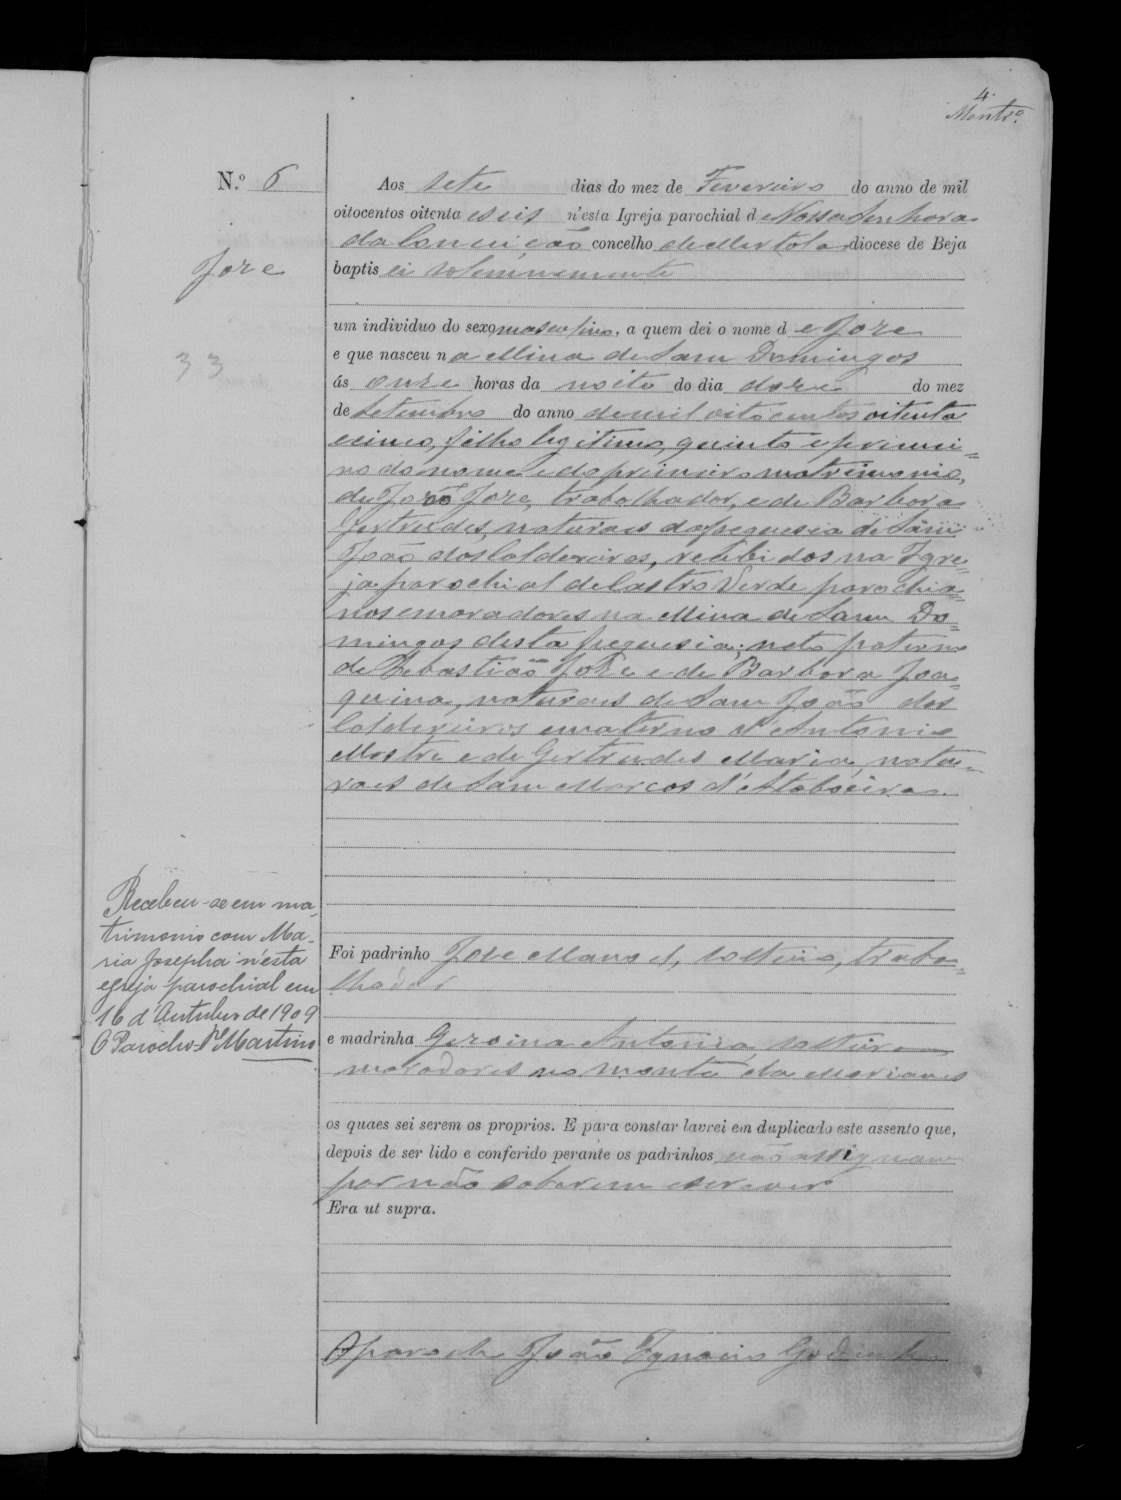 4
Montrº.
N.º 6
Joze
33
Aos sete dias do mez de Fevereiro do anno de mil
oitocentos oitenta e seis n'esta Igreja parochial de Nossa Senhora
da Conceição concelho de Mertola diocese de Beja
baptisei solemnemente
um individuo do sexo masculino, a quem dei o nome de Joze
e que nasceu na Mina de Sam Domingos
ás onze horas da noite do dia doze do mez
de Setembro do anno de mil oito centos oitenta
e cinco, filho legitimo, quinto e primei=
ro do nome e do primeiro matrimonio,
de João Joze, trabalhador, e de Barbora
Gertrudes, naturaes da freguesia de Sam
João dos Caldereiros, recibidos na Igre=
ja parochial de Castro Verde parochia=
nos e moradores na Mina de Sam Do=
mingos desta freguesia; neto paterno
de Sebastião Joze e de Barbora Joa=
quina, naturaes de Sam João dos
Caldereiros e materno d'Antonio
Mestre e de Gertrudes Maria, natu=
raes de Sam Marcos d'Ataboeira.
Recebeu-se em ma-
trimonio com Ma-
ria Josepha n'esta
egreja parochial em
16 d'Outubro de 1909
O Parocho Martins
Foi padrinho Joze Manoel, solteiro, traba=
lhador
e madrinha Antonia, solteira
moradores no monte da
os quaes sei serem os proprios. E para constar lavrei em duplicado este assento que,
depois de ser lido e conferido perante os padrinhos não assignam
por não saberem escrever
Era ut supra.
O parocho João Ignacio Godinho